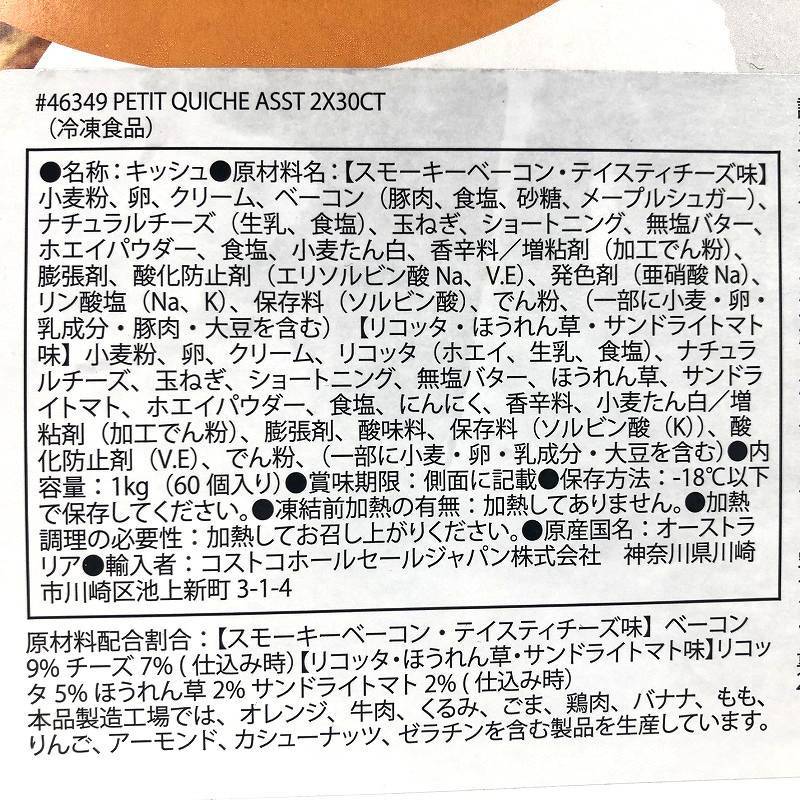 #46349 PETIT QUICHE ASST 2X30CT
（冷凍食品）
●名称：キッシュ●原材料名：【スモーキーベーコン・テイスティチーズ味】
小麦粉、卵、クリーム、ベーコン（豚肉、食塩、砂糖、メープルシュガー）、
ナチュラルチーズ（生乳、食塩）、玉ねぎ、ショートニング、無塩バター、
ホエイパウダー、食塩、小麦たん白、香辛料／増粘剤（加工でん粉）、
膨張剤、酸化防止剤（エリソルビン酸Na、V.E）、発色剤（亜硝酸Na）、
リン酸塩（Na、K）、保存料（ソルビン酸）、でん粉、（一部に小麦・卵・
乳成分・豚肉・大豆を含む）【リコッタ・ほうれん草・サンドライトマト
味】小麦粉、卵、クリーム、リコッタ（ホエイ、生乳、食塩）、ナチュラ
ルチーズ、玉ねぎ、ショートニング、無塩バター、ほうれん草、サンドラ
イトマト、ホエイパウダー、食塩、にんにく、香辛料、小麦たん白／増
粘剤（加工でん粉）、膨張剤、酸味料、保存料（ソルビン酸（K））、酸
化防止剤（V.E）、でん粉、（一部に小麦・卵・乳成分・大豆を含む）●内
容量：1kg（60個入り）●賞味期限：側面に記載●保存方法：-18℃以下
で保存してください。●凍結前加熱の有無：加熱してありません。●加熱
調理の必要性：加熱してお召し上がりください。●原産国名：オーストラ
リア●輸入者：コストコホールセールジャパン株式会社　神奈川県川崎
市川崎区池上新町 3-1-4
原材料配合割合：【スモーキーベーコン・テイスティチーズ味】ベーコン
9% チーズ 7% ( 仕込み時)【リコッタ・ほうれん草・サンドライトマト味】リコッ
タ 5% ほうれん草 2% サンドライトマト 2% ( 仕込み時)
本品製造工場では、オレンジ、牛肉、くるみ、ごま、鶏肉、バナナ、もも、
りんご、アーモンド、カシューナッツ、ゼラチンを含む製品を生産しています。